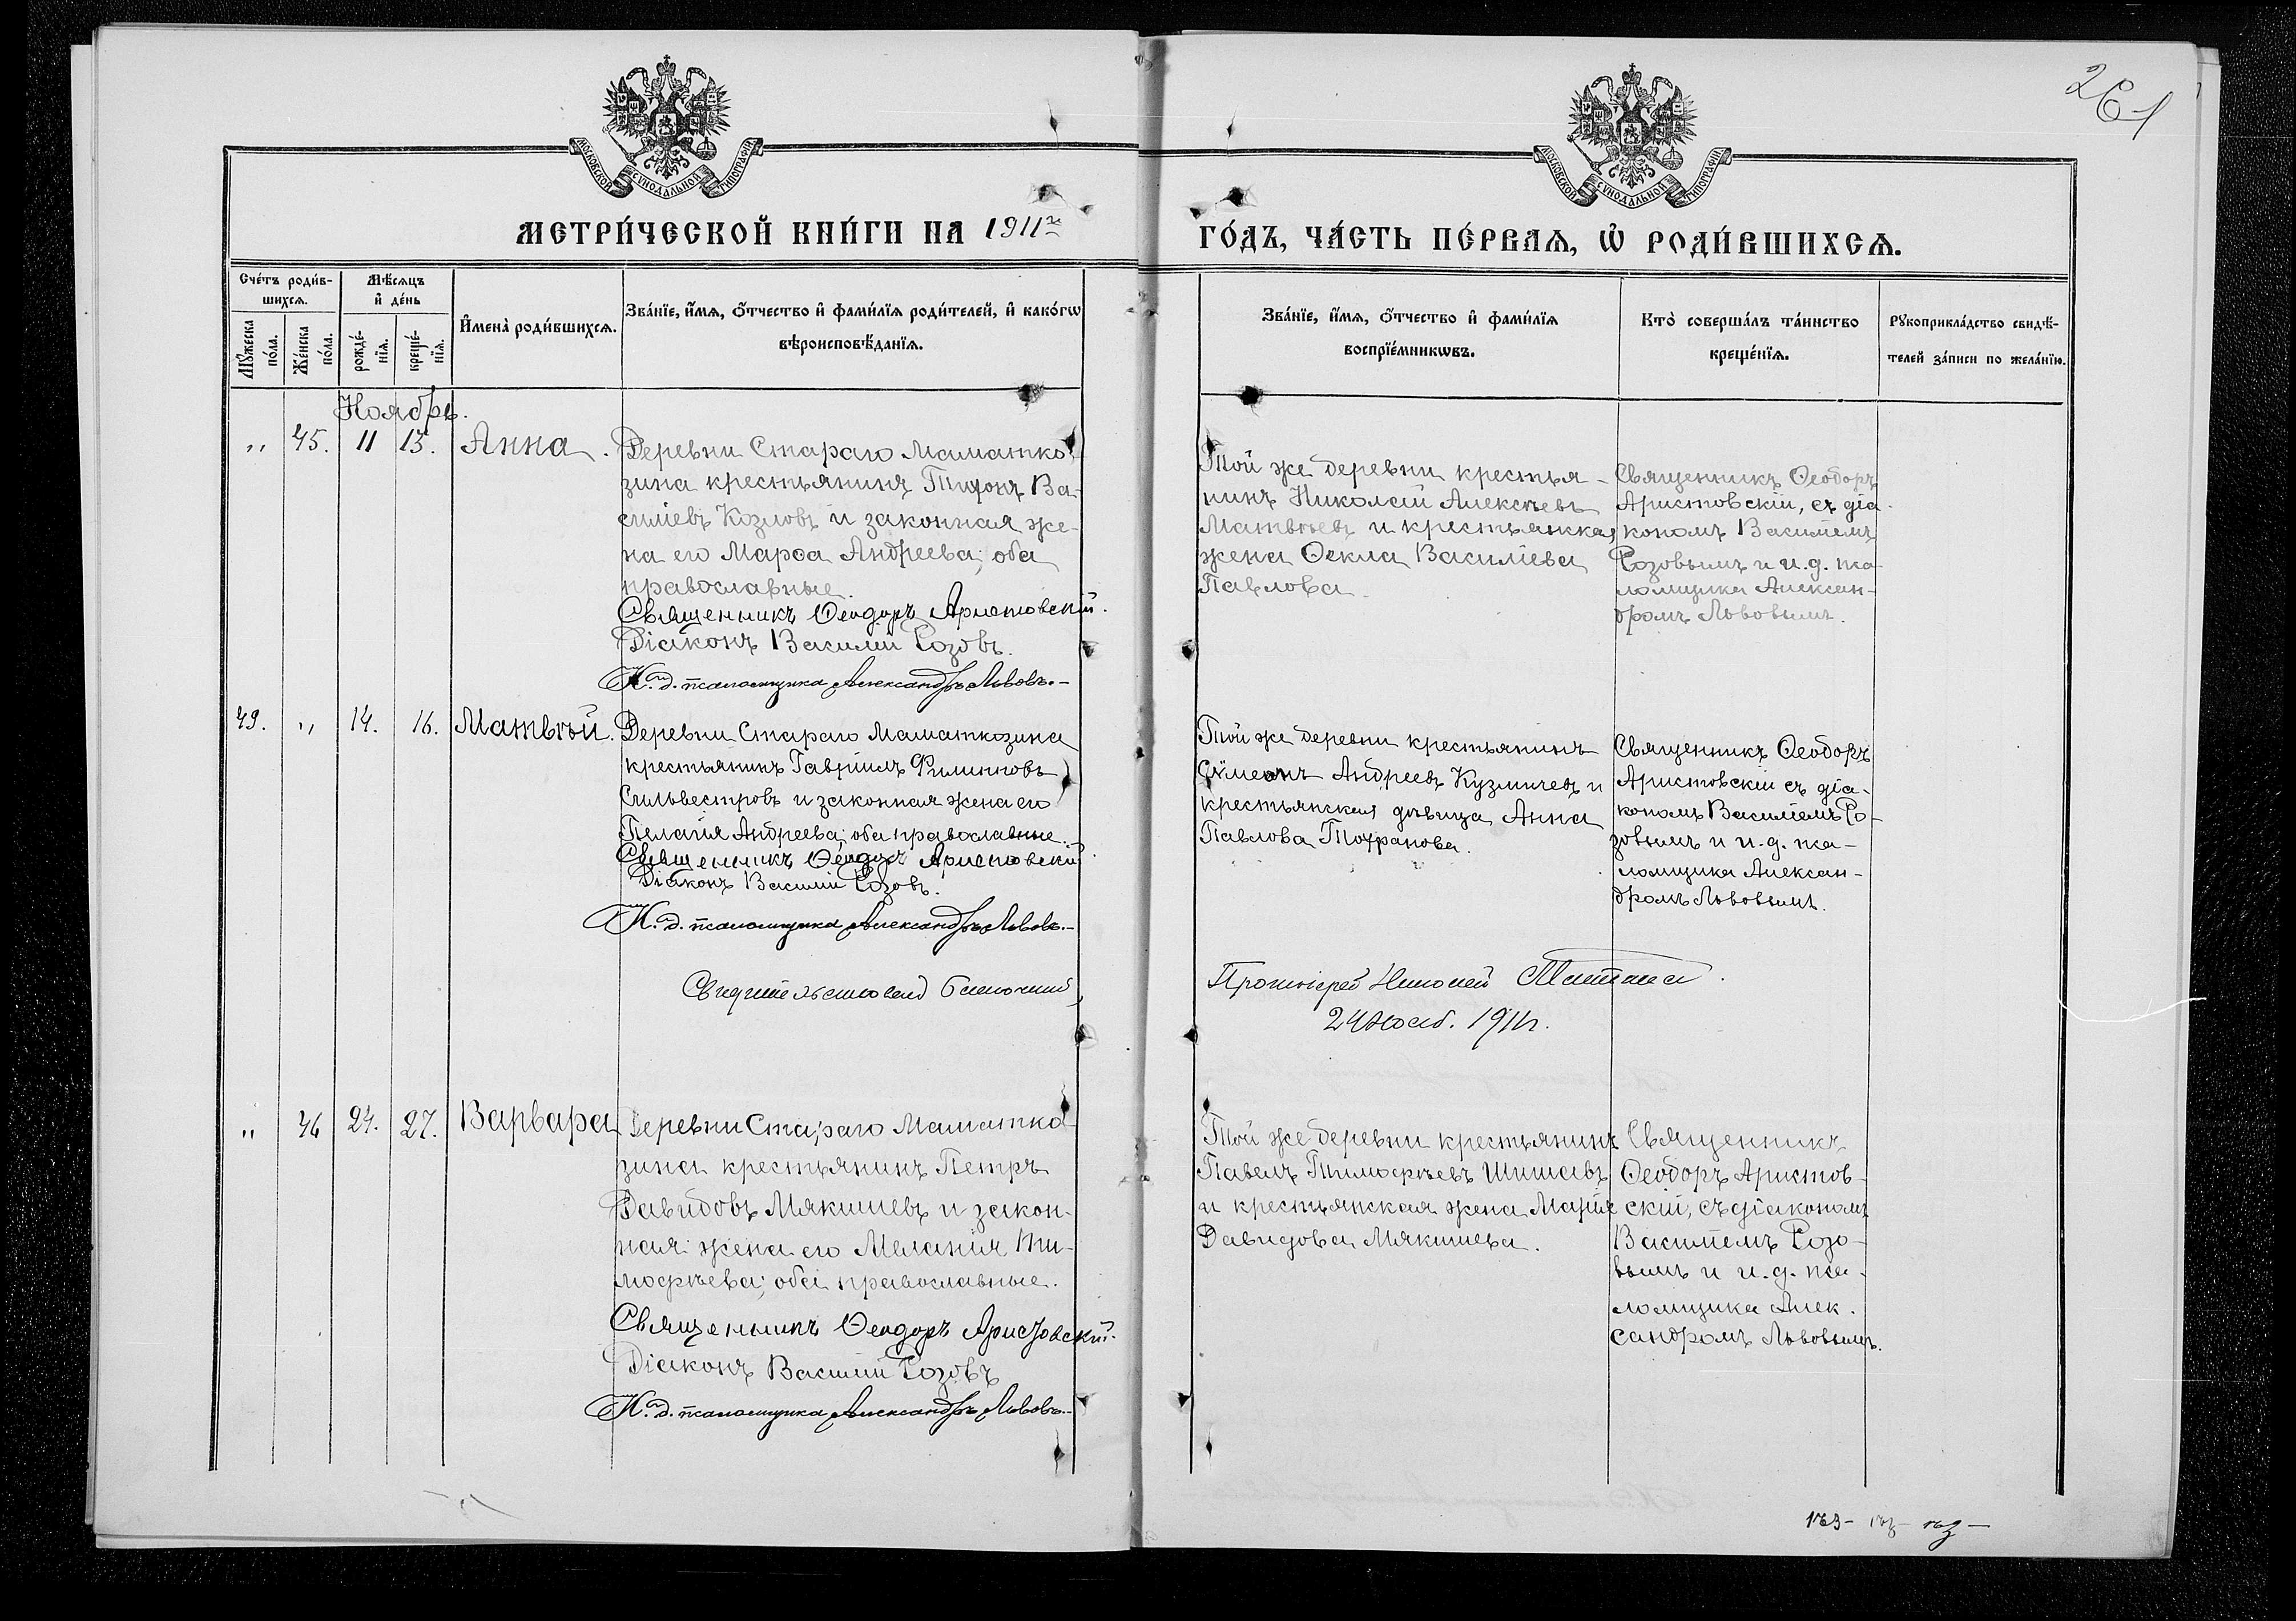 261
МОСКОВСКОЙ СѴНОДАЛЬНОЙ ТИПОГРАФІИ
МОСКОВСКОЙ СѴНОДАЛЬНОЙ ТИПОГРАФІИ
МЕТРИ́ЧЕСКОЙ КНИ́ГИ НА 1911й
ГО́ДЪ, ЧА́СТЬ ПЕ́РВАѦ, Ѡ҆ РОДИ́ВШИХСѦ.
Сче́тъ роди́в-
шихсѧ.
Мѣ́сѧцъ
и҆ де́нь
Мꙋ́жеска
по́ла.
Же́нска
по́ла.
рожде́-
нїѧ.
креще́-
нїѧ.
И҆мена̀ роди́вшихсѧ.
Зва́нїе, и҆́мѧ, ѻ҆́тчество и҆ фами́лїѧ роди́телей, и҆ како́гѡ
вѣроисповѣ́данїѧ.
Зва́нїе, и҆́мѧ, ѻ҆́тчество и҆ фами́лїѧ
воспрїе́мникѡвъ.
Кто̀ соверша́лъ та́инство
креще́нїѧ.
Рꙋкоприкла́дство свидѣ́-
телей за́писи по жела́нїю.
Ноябрь.
„ 45. 11 13. Анна.
Деревни Стараго Маматко-
зина крестьянинъ Тихонъ Ва-
силіевъ Козловъ и законная же-
на его Марѳа Андреева; оба
православные.
Священникъ Ѳеодоръ Аристовскій.
Діаконъ Василій Розовъ.
И. д. псаломщика Александръ Львовъ.-
Той же деревни крестья-
нинъ Николай Алексѣевъ
Матвѣевъ и крестьянская
жена Ѳекла Василіева
Павлова.
Священникъ Ѳеодоръ
Аристовскій, съ діа-
кономъ Василіемъ
Розовымъ и и. д. пса-
ломщика Алексан-
дромъ Львовымъ.
49. „ 14. 16. Матвѣй.
Деревни Стараго Маматкозина
крестьянинъ Гавріилъ Филипповъ
Сильвестровъ и законная жена его
Пелагія Андреева; оба православные.
Священникъ Ѳеодоръ Аристовскій.
Діаконъ Василій Розовъ.
И. д. псаломщика Александръ Львовъ.-
Той же деревни крестьянинъ
Сѵмеонъ Андреевъ Кузмичевъ и
крестьянская дѣвица Анна
Павлова
Священникъ Ѳеодоръ
Аристовскій съ діа-
кономъ Василіемъ Ро-
зовымъ и и. д. пса-
ломщика Алексан-
дромъ Львовымъ.
Свидѣтельствовалъ Благочинный
Протоіерей Николай
24 Нояб. 1911 г.
„ 46 24. 27. Варвара
Деревни Стараго Маматко-
зина крестьянинъ Петръ
Давидовъ Мякишевъ и закон-
ная жена его Меланія Ти-
моѳѣева; оба православные.
Священникъ Ѳеодоръ Аристовскій.
Діаконъ Василій Розовъ
И. д. псаломщика Александръ Львовъ.-
Той же деревни крестьянинъ
Павелъ Тимоѳѣевъ Шишовъ
и крестьянская жена Марія
Давидова Мякишева.
Священникъ
Ѳеодоръ Аристов-
скій, съ діакономъ
Василіемъ Розо-
вымъ и и. д. пса-
ломщика Алек-
сандромъ Львовымъ.